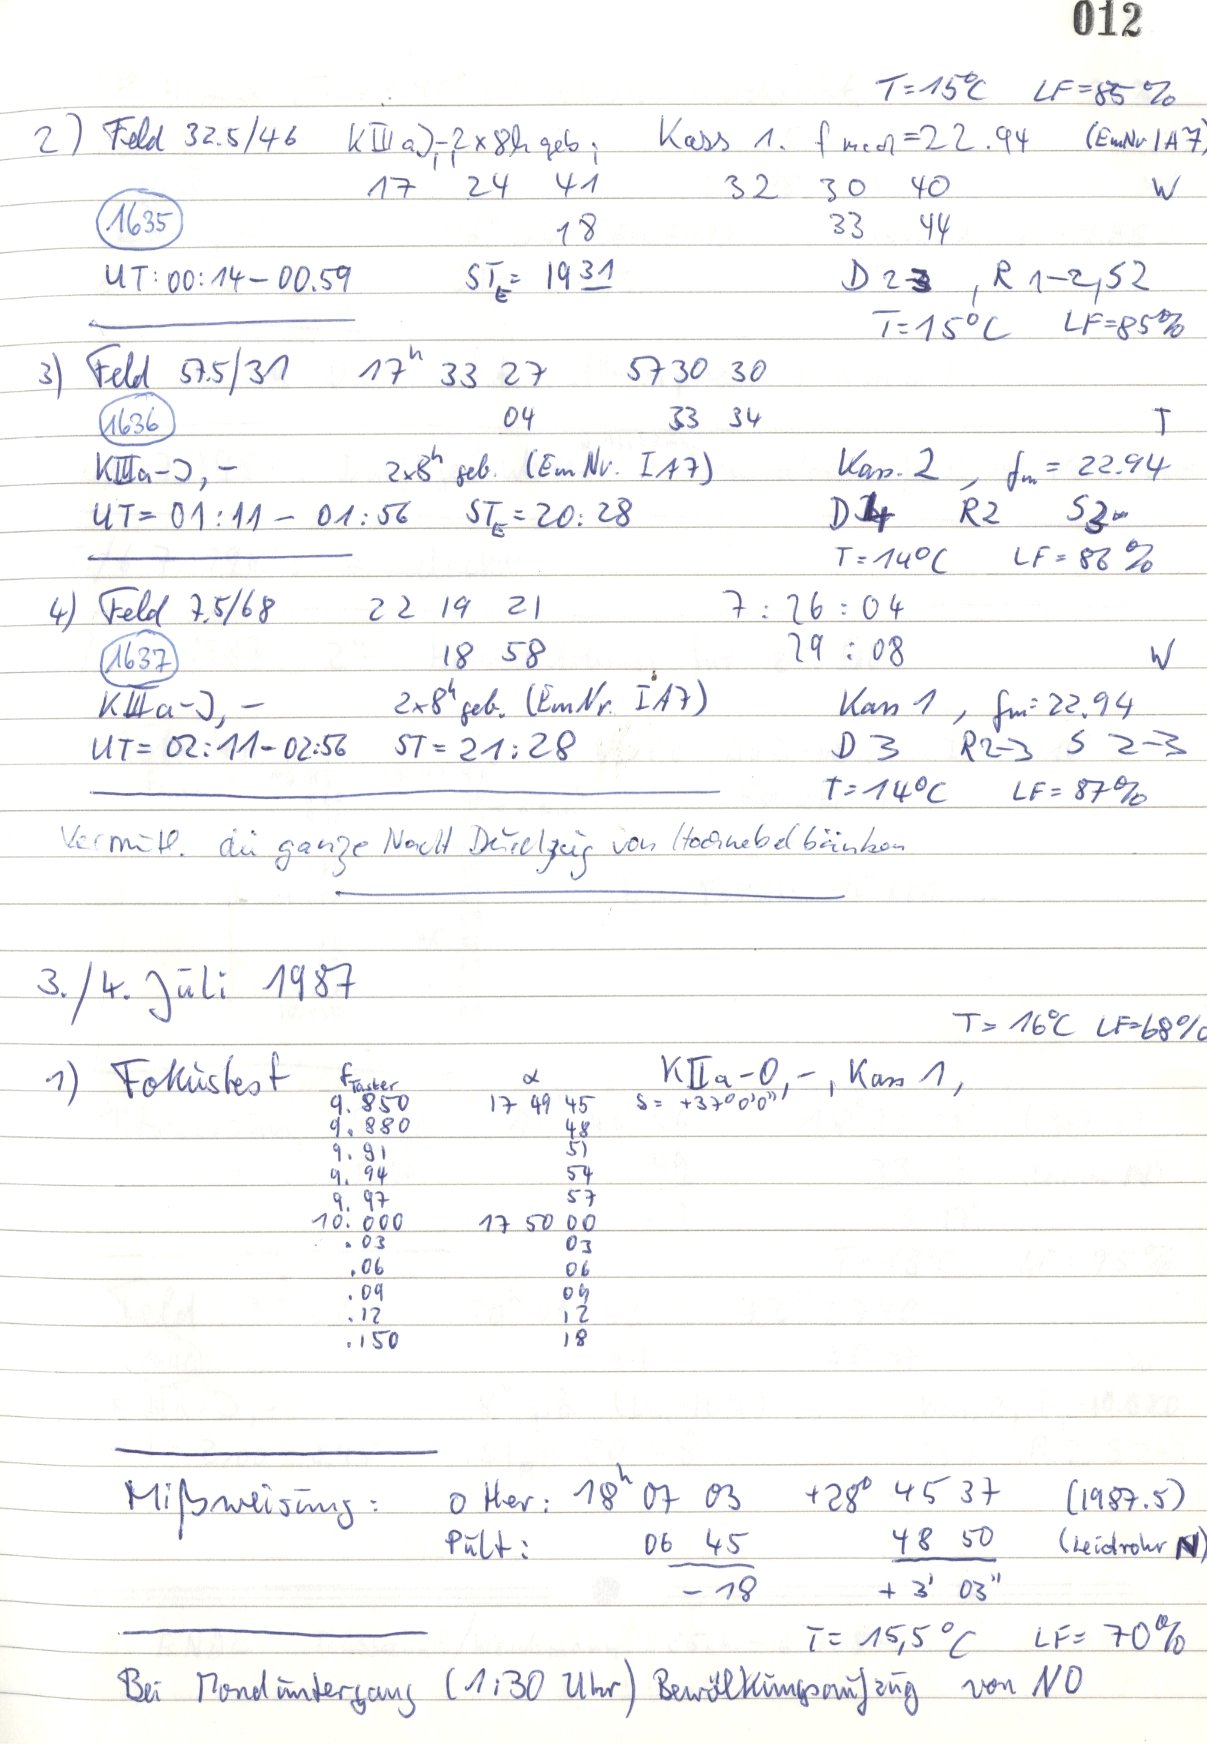 012
T=15°C LF=85%
2) Feld 32.5/46 KIIIaJ,-, 2×8h geb; Kass 1. fmed=22.94 (EmNr IA7)
17 24 41 32 30 40 W
1635 18 33 44
UT: 00:14-00.59 STE= 1931 D 2-3, R 1-2, S2
T=15°C LF=85%
3) Feld 57.5/31 17h 33 27 57 30 30
1636 04 33 34 T
KIIIa-J, - 2×8h geb. (Em Nr. IA7) Kass. 2, fm= 22.94
UT= 01:11 - 01:56 STE= 20:28 D 4 R2 S3-
T=14°C LF=86%
4) Feld 7.5/68 22 19 21 7:26:04
1637 18 58 29:08 W
KIIIa-J, - 2×8h geb. (EmNr. IA7) Kass 1, fm=22.94
UT= 02:11-02:56 ST=21:28 D 3 R2-3 S 2-3
T=14°C LF=87%
Vermutl. die ganze Nacht Durchzug von Hochnebelbänken
3./4. Juli 1987
T= 16°C LF=68%
1) Fokustest fTaster α KIIa-O, -, Kass 1,
9.850 17 49 45 δ= +37°0'0"
9.880 48
9.91 51
9.94 54
9.97 57
10.000 17 50 00
.03 03
.06 06
.09 09
.12 12
.150 18
Mißweisung: o Her: 18h 07 03 +28° 45 37 (1987.5)
Pult: 06 45 48 50 (Leidrohr N)
-18 + 3' 03"
T= 15,5°C LF= 70%
Bei Monduntergang (1:30 Uhr) Bewölkungsaufzug von NO